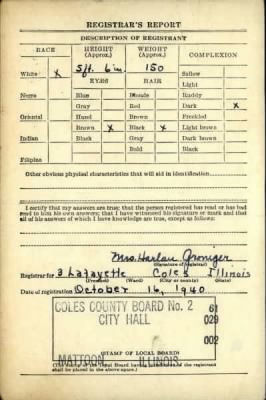 REGISTRAR'S REPORT
DESCRIPTION OF REGISTRANT
RACE HEIGHT (Approx.) WEIGHT (Approx.) COMPLEXION
5ft. 6in. 150
White X Sallow
EYES HAIR Light
Negro Blue Blonde Ruddy
Gray Red Dark X
Oriental Hazel Brown Freckled
Brown X Black X Light brown
Indian Black Gray Dark brown
Bald Black
Filipino
Other obvious physical characteristics that will aid in identification
I certify that my answers are true; that the person registered has read or has had
read to him his own answers; that I have witnessed his signature or mark and that
all of his answers of which I have knowledge are true, except as follows:
Mrs. Harlan Groniger
(Signature of registrar)
Registrar for 3 Lafayette Coles Illinois
(Precinct) (Ward) (City or county) (State)
Date of registration October 16, 1940
COLES COUNTY BOARD No. 2 61
CITY HALL 029
002
MATTOON ILLINOIS
(STAMP OF LOCAL BOARD)
(The stamp of the Local Board having jurisdiction of the registrant
shall be placed in the above space.)